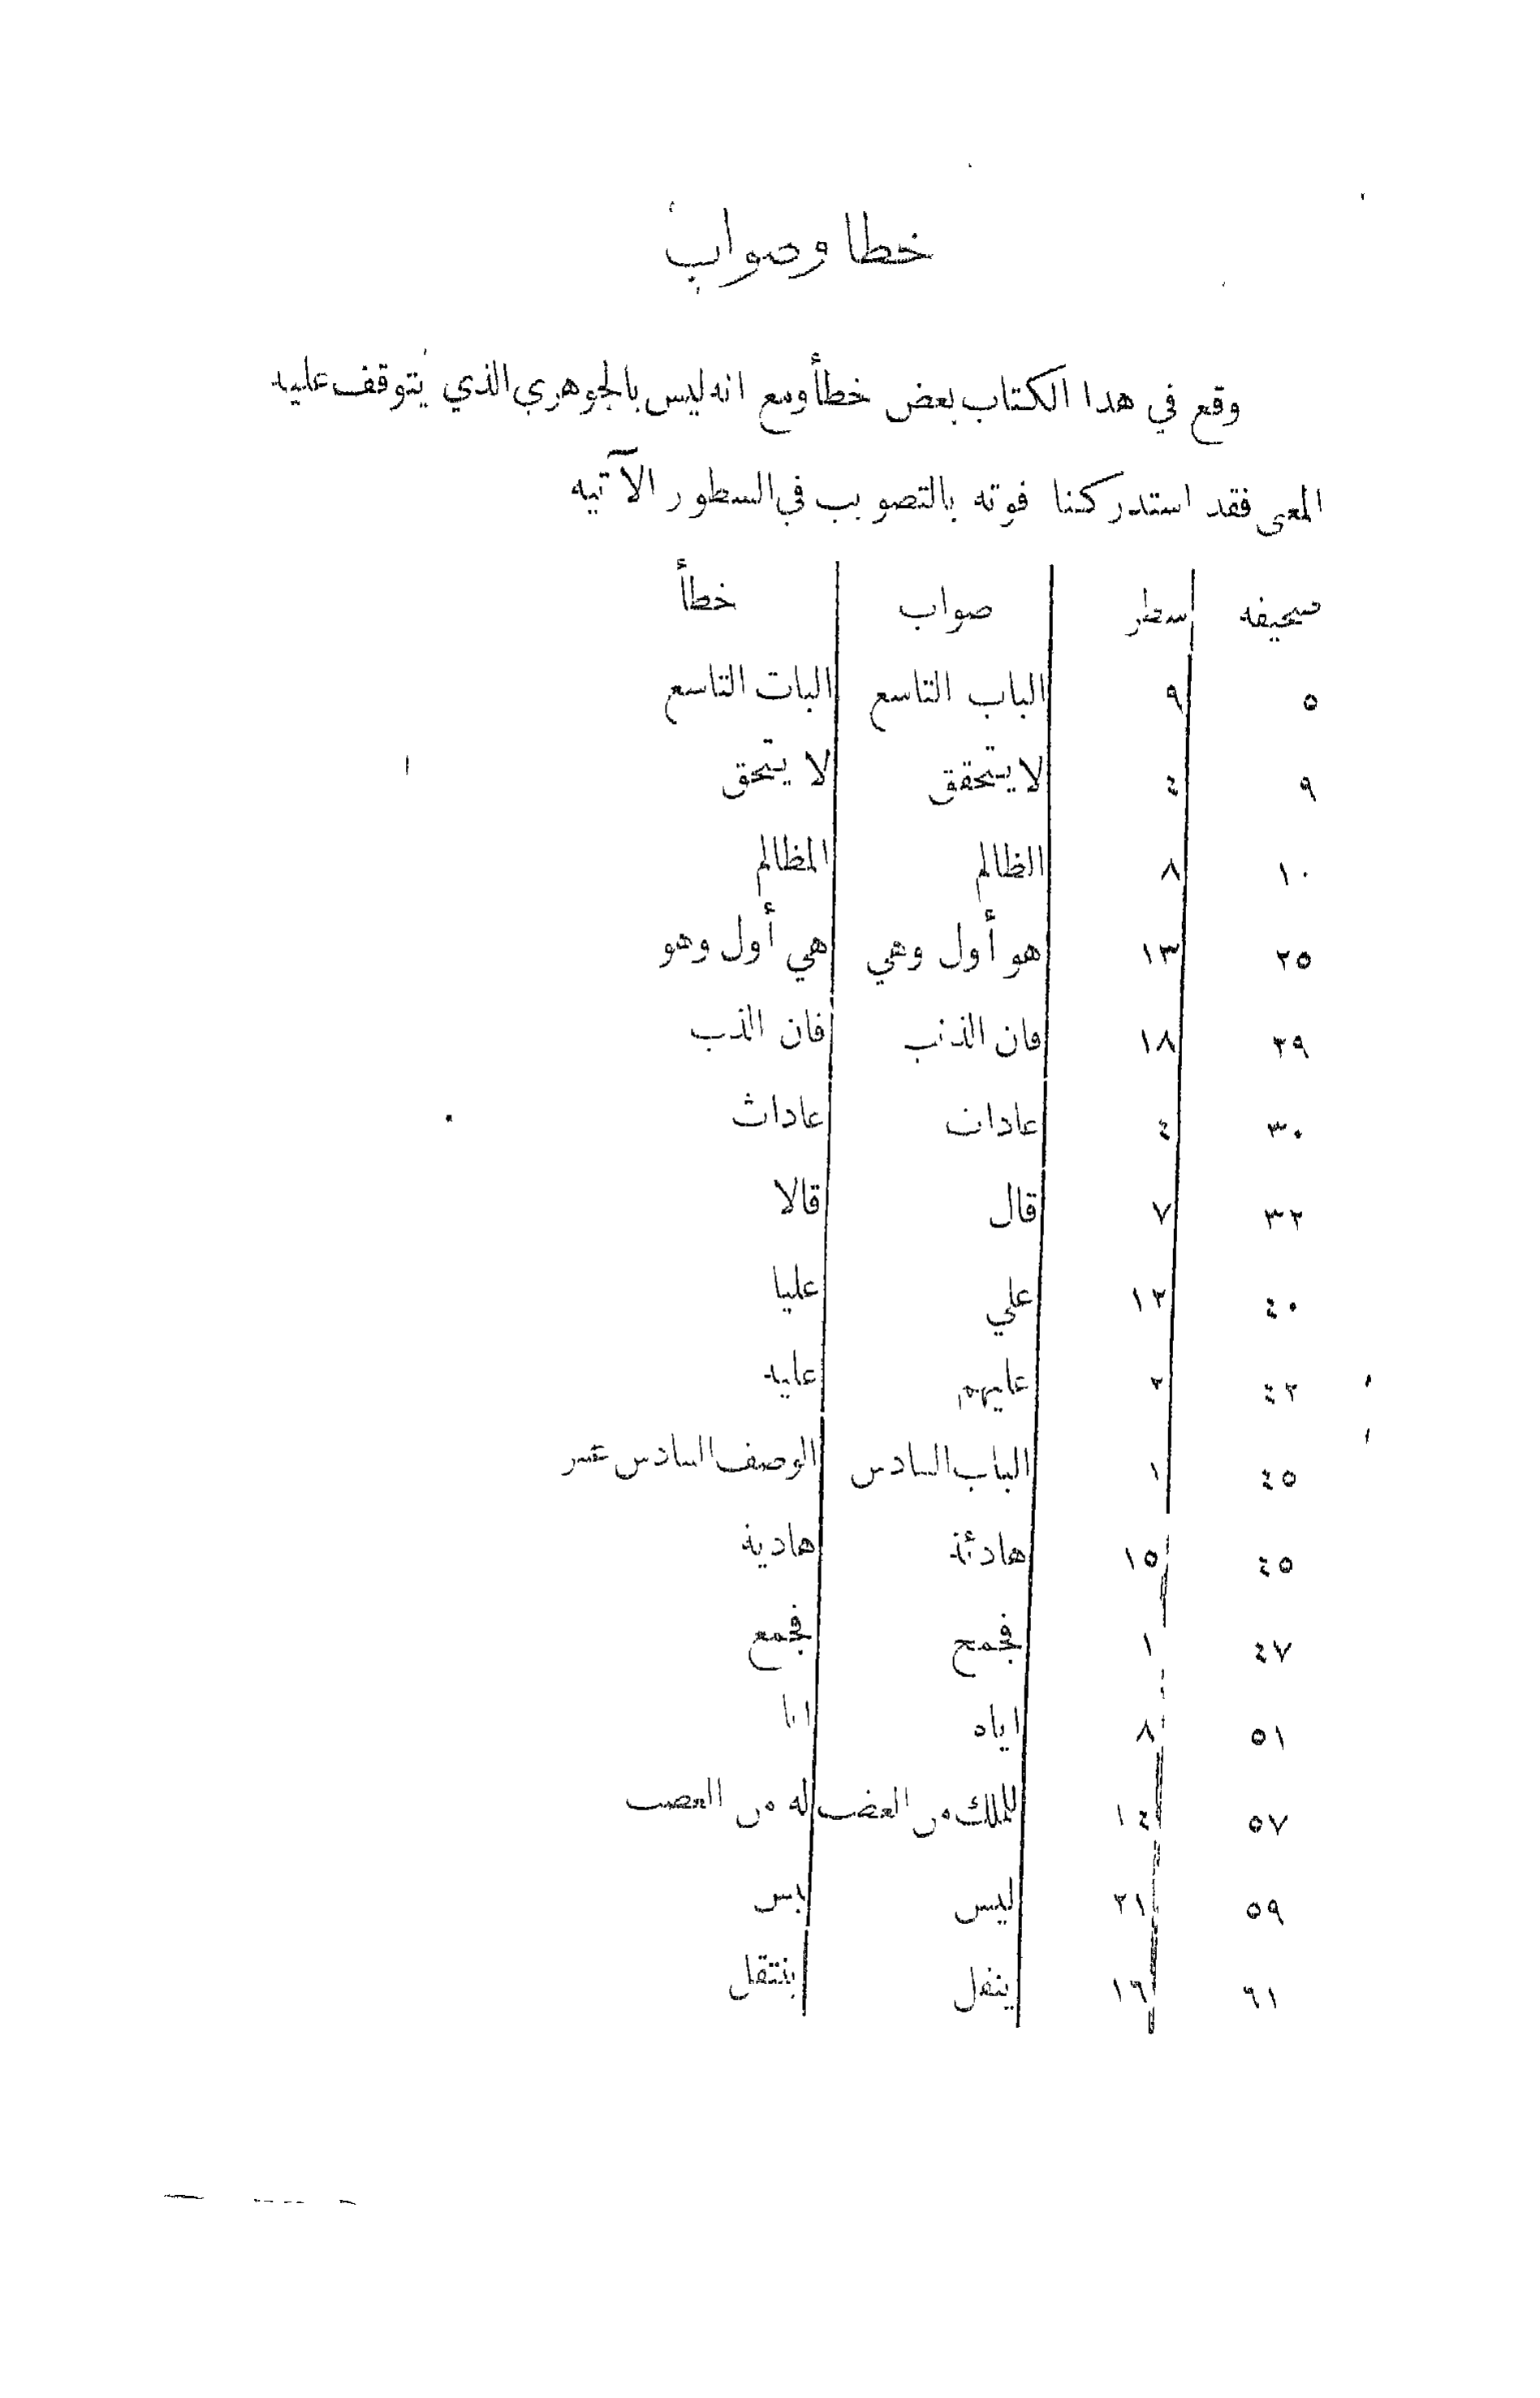 خطا وصواب
وقع في هدا الكتاب بعض خطأ ومع انه ليس بالجوهري الذي يتوقف عليه
المعى فقد استدركنا فوته بالتصويب في السطور الآتيه
صحيفه سطر صواب خطأ
٥ ٩ الباب التاسع البات التاسع
٩ ٤ لا يتحقق لا يتحق
١٠ ٨ الظالم المظالم
٢٥ ١٣ هو أول وهي هي أول وهو
٢٩ ١٨ فان الذنب فان الذب
٣٠ ٤ عادات عاداث
٣٢ ٧ قال قالا
٤٠ ١٢ علي عليا
٤٢ ٢ عليهم عليه
٤٥ ١ الباب السادس الوصف السادس عشر
٤٥ ١٥ هادئة هادية
٤٧ ١ فجمح فجمع
٥١ ٨ اياه انا
٥٧ ١٤ للملك من الغضب له من العصب
٥٩ ٢١ ليس بس
٦١ ١٩ ينقل بنتقل